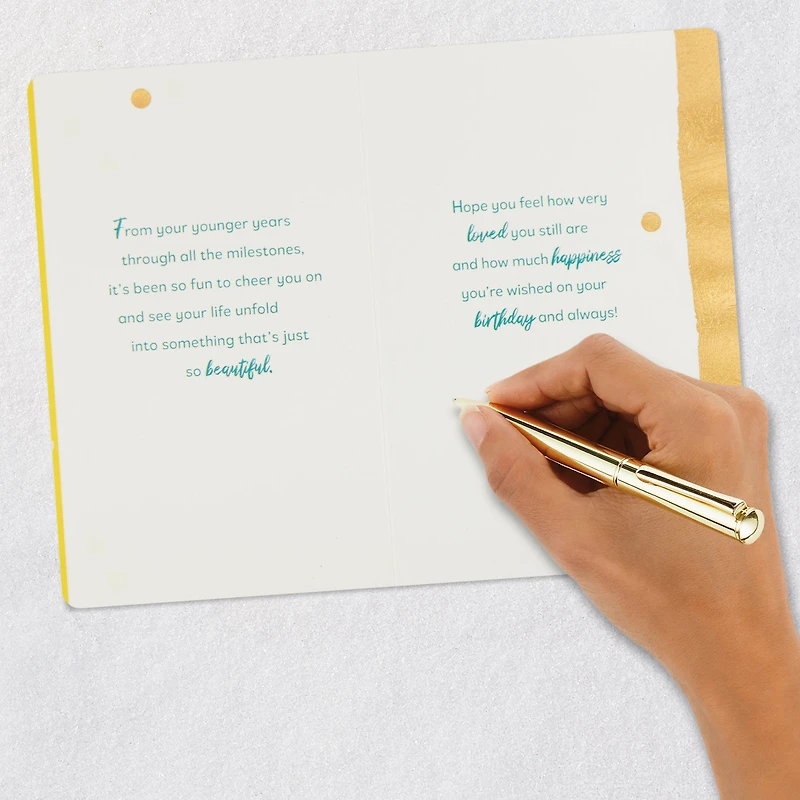 From your younger years
through all the milestones,
it's been so fun to cheer you on
and see your life unfold
into something that's just
so beautiful.
Hope you feel how very
loved you still are
and how much happiness
you're wished on your
birthday and always!